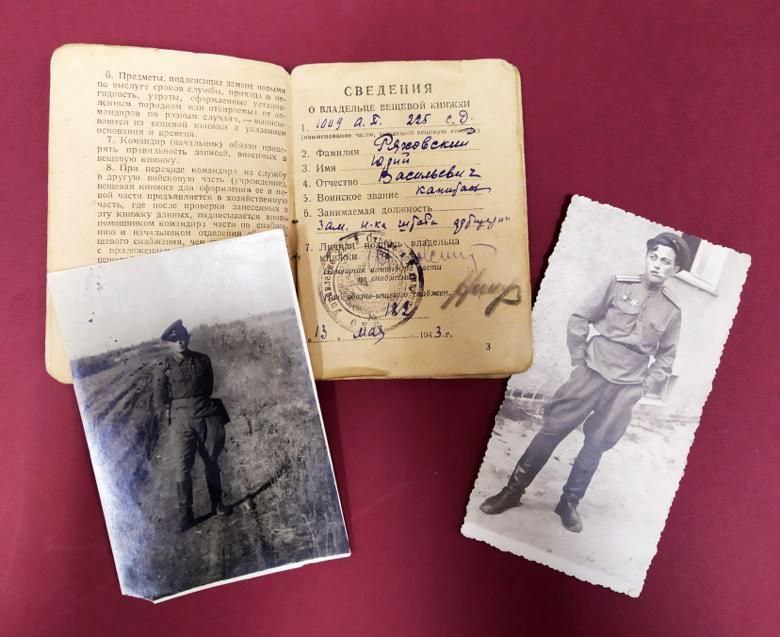 6. Предметы, подлежащие замене новыми
по выслуге сроков службы, приходя в не-
годность, утраты, оформленные установ-
ленным порядком или отбираемых от ко-
мандиров по разным случаям, — выписы-
ваются из вещевой книжки с указанием
основания и времени.
7. Командир (начальник) обязан прове-
рять правильность записей, вносимых в
вещевую книжку.
8. При переходе командира на службу
в другую войсковую часть (учреждение),
вещевая книжка для оформления ее в но-
вой части предъявляется в хозяйственную
часть, где после проверки занесенных в
эту книжку данных, подписывается вновь
помощником командира части по снабже-
нию и начальником отделения
щевого снабжения, чем
с приложением
вещевая
СВЕДЕНИЯ
О ВЛАДЕЛЬЦЕ ВЕЩЕВОЙ КНИЖКИ
1. 1009 а.п. 225 с.д.
(наименование части, выдавшей вещевую книжку)
2. Фамилия Ряховский
3. Имя Юрий
4. Отчество Васильевич
5. Воинское звание капитан
6. Занимаемая должность
Зам. н-ка штаба
7. Личная подпись владельца
книжки
Помощник командира части
по снабжению
снабжен.
№ 122
13 мая 1943 г.
3